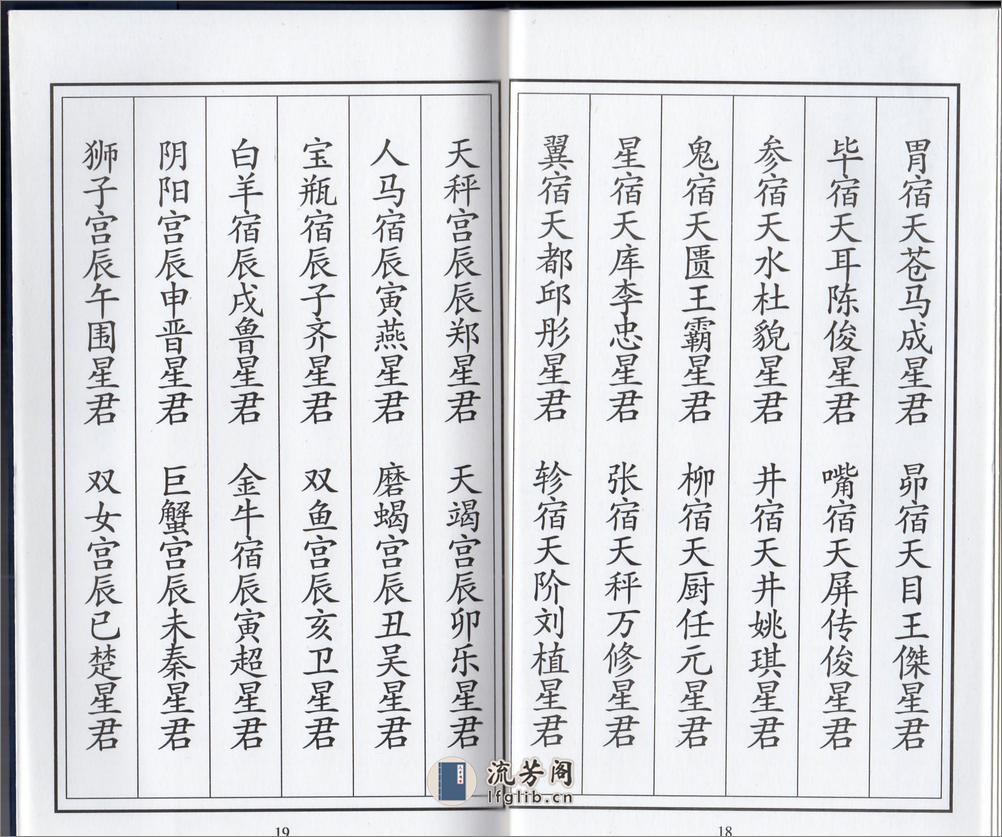 胃宿天苍马成星君 昴宿天目王傑星君
毕宿天耳陈俊星君 嘴宿天屏传俊星君
参宿天水杜貌星君 井宿天井姚琪星君
鬼宿天匮王霸星君 柳宿天厨任元星君
星宿天库李忠星君 张宿天秤万修星君
翼宿天都邱彤星君 轸宿天阶刘植星君
18
天秤宫辰辰郑星君 天竭宫辰卯乐星君
人马宿辰寅燕星君 磨蝎宫辰丑吴星君
宝瓶宿辰子齐星君 双鱼宫辰亥卫星君
白羊宿辰戌鲁星君 金牛宿辰寅超星君
阴阳宫辰申晋星君 巨蟹宫辰未秦星君
狮子宫辰午围星君 双女宫辰已楚星君
19
流芳阁
lfglib.cn